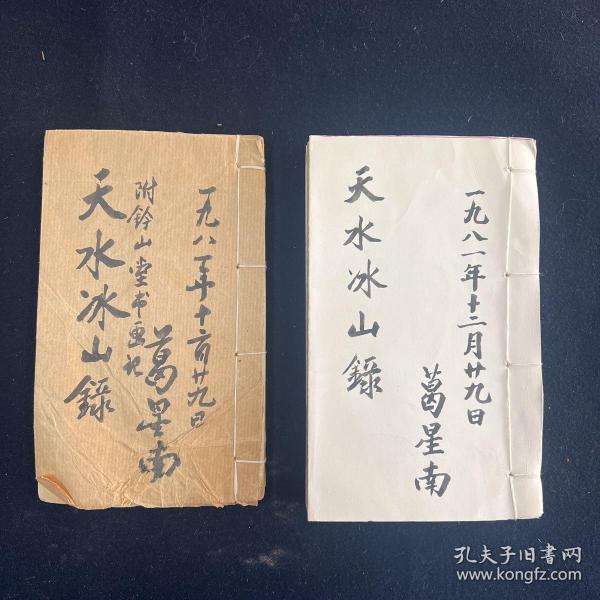 天水冰山錄
附钤山堂书画记
一九八一年十二月廿九日
葛星南
天水冰山錄
一九八一年十二月廿九日
葛星南
孔夫子旧書网
www.kongfz.com